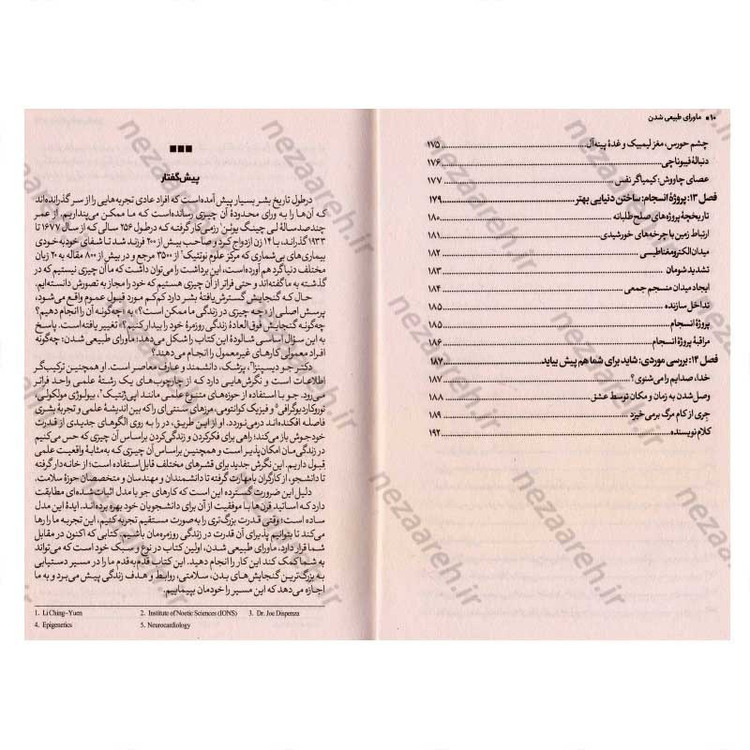 ۱۰ ▪ ماورای طبیعی شدن
چشم حورس، مغز لیمبیک و غدهٔ پینه‌آل ۱۷۵
دنبالهٔ فیبوناچی ۱۷۶
عصای چاووش: کیمیاگر نفس ۱۷۷
فصل ۱۳: پروژهٔ انسجام: ساختن دنیایی بهتر ۱۷۹
تاریخچهٔ پروژه‌های صلح‌طلبانه ۱۸۰
ارتباط زمین با چرخه‌های خورشیدی ۱۸۱
میدان الکترومغناطیسی ۱۸۲
تشدید شومان ۱۸۳
ایجاد میدان منسجم جمعی ۱۸۴
تداخل سازنده ۱۸۵
پروژهٔ انسجام ۱۸۵
مراقبهٔ پروژهٔ انسجام ۱۸۶
فصل ۱۴: بررسی موردی: شاید برای شما هم پیش بیاید ۱۸۷
خدا، صدایم را می‌شنوی؟ ۱۸۷
وصل شدن به زمان و مکان توسط عشق ۱۸۸
جری از کام مرگ برمی‌خیزد ۱۸۹
کلام نویسنده ۱۹۲
پیش‌گفتار
در طول تاریخ بشر بسیار پیش آمده است که افراد عادی تجربه‌هایی را از سر گذرانده‌اند
که آن‌ها را به ورای محدودهٔ آن چیزی رسانده‌است که ما ممکن می‌پنداریم. از عمر
چندصدسالهٔ لی چینگ یوئن؛ رزمی‌کار گفته که در طول ۲۵۶ سالی که از سال ۱۶۷۷ تا
۱۹۳۳ گذراند، با ۱۴ زن ازدواج کرد و صاحب بیش از ۲۰۰ فرزند شد تا شفای خودبه‌خودی
بیماری‌های بی‌شماری که مرکز علوم نوئتیک۲ از ۳۵۰۰ مرجع و در بیش از ۸۰۰ مقاله به ۲۰ زبان
مختلف دنیا گرد هم آورده‌است، این برداشت را می‌توان داشت که ما آن چیزی نیستیم که در
گذشته به ما گفته‌اند و حتی فراتر از آن چیزی هستیم که خود را مجاز به تصورش دانسته‌ایم.
حال که گنجایش گسترش‌یافتهٔ بشر دارد کم‌کم مورد قبول عموم واقع می‌شود،
پرسش اصلی از «چه چیزی در زندگی ما ممکن است؟» به «چگونه آن را انجام دهیم؟
چگونه گنجایش فوق‌العادهٔ زندگی روزمرهٔ خود را بیدار کنیم؟» تغییر یافته‌است. پاسخ
به این سؤال اساسی شالودهٔ این کتاب را شکل می‌دهد: ماورای طبیعی شدن: چگونه
افراد معمولی کارهای غیرمعمول را انجام می‌دهند؟
دکتر جو دیسپنزا۳، پزشک، دانشمند و عارف معاصر است. او همچنین ترکیب‌گر
اطلاعات است و نگرش‌هایی دارد که از چارچوب‌های یک رشتهٔ علمی واحد فراتر
می‌رود. جو با استفاده از حوزه‌های متنوع علمی مانند اپی‌ژنتیک۴، بیولوژی مولکولی،
نوروکاردیوگرافی۵ و فیزیک کوانتومی، مرزهای سنتی‌ای را که بین اندیشهٔ علمی و تجربهٔ بشری
فاصله افکنده‌اند درمی‌نوردد. او از این طریق، در را به روی الگوهای جدیدی از قدرت
خودجوش باز می‌کند؛ راهی برای فکر کردن و زندگی کردن براساس آن چیزی که حس می‌کنیم
در زندگی‌مان امکان‌پذیر است و همچنین براساس آن چیزی که به‌مثابهٔ واقعیت علمی
قبول داریم. این نگرش جدید برای قشرهای مختلف قابل استفاده است؛ از خانه‌دار گرفته
تا دانشجو، از کارگران بامهارت گرفته تا دانشمندان و مهندسان و متخصصان حوزهٔ سلامت.
دلیل این ضرورت گسترده این است که کارهای جو با مدل اثبات‌شده‌ای مطابقت
دارد که اساتید قرن‌ها با موفقیت از آن برای دانشجویان خود بهره برده‌اند. ایدهٔ این مدل
ساده است؛ وقتی قدرت بزرگ‌تری را به‌صورت مستقیم تجربه کنیم، این تجربه ما را رها
می‌کند تا بتوانیم پذیرای آن قدرت در زندگی روزمره‌مان باشیم. کتابی که اکنون در مقابل
شما قرار دارد، ماورای طبیعی شدن، اولین کتاب در نوع و سبک خود است که می‌تواند
به شما کمک کند این کار را انجام دهید. این کتاب قدم‌به‌قدم ما را در مسیر دستیابی
به بزرگ‌ترین گنجایش‌های بدن، سلامتی، روابط و هدف زندگی پیش می‌برد و به ما
اجازه می‌دهد که این مسیر را خودمان بپیماییم.
1. Li Ching-Yuen 2. Institute of Noetic Sciences (IONS) 3. Dr. Joe Dispenza
4. Epigenetics 5. Neurocardiology
nezaareh.ir
nezaareh.ir
nezaareh.ir
nezaareh.ir
nezaareh.ir
nezaareh.ir
nezaareh.ir
nezaareh.ir